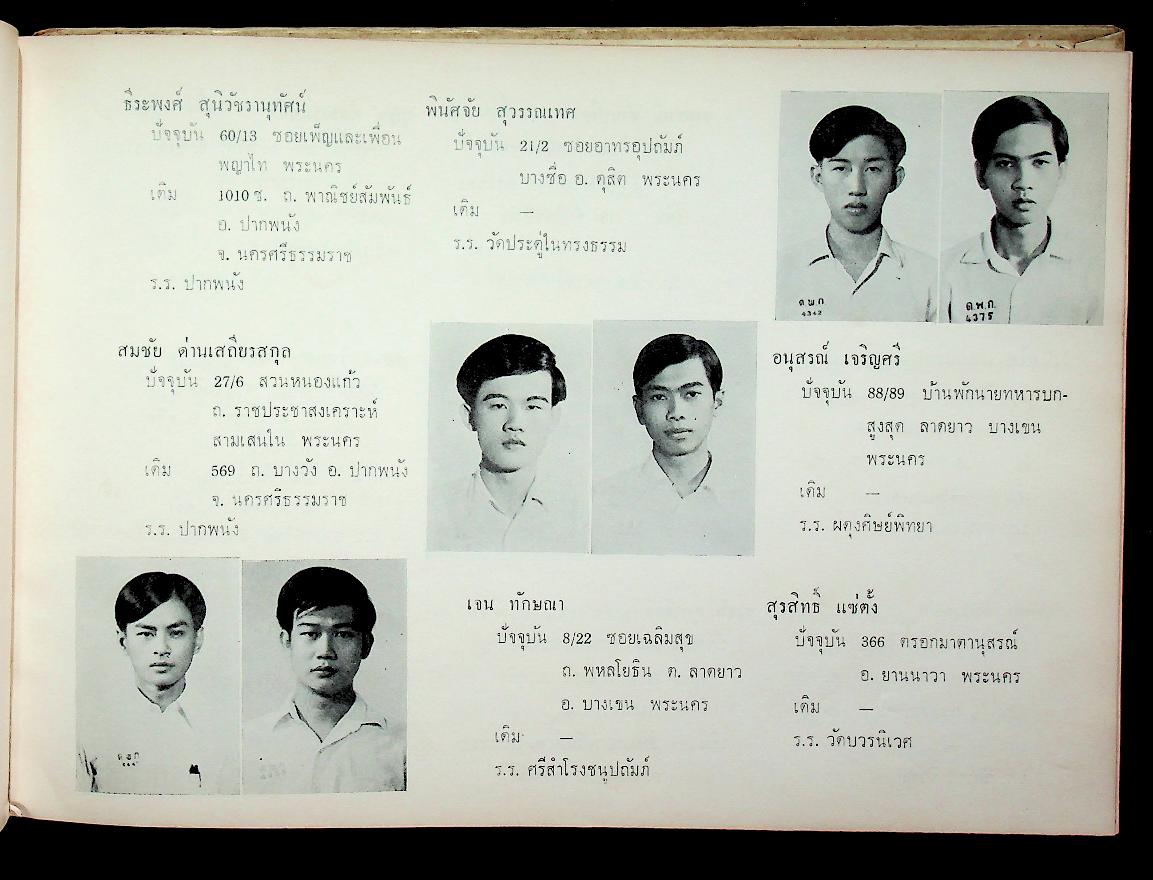 ธีระพงศ์ สุนิวัชรานุทัศน์
ปัจจุบัน 60/13 ซอยเพ็ญและเพื่อน
พญาไท พระนคร
เดิม 1010 ซ. ถ. พาณิชย์สัมพันธ์
อ. ปากพนัง
จ. นครศรีธรรมราช
ร.ร. ปากพนัง
พินัศจัย สุวรรณเทศ
ปัจจุบัน 21/2 ซอยอาทรอุปถัมภ์
บางซื่อ อ. ดุสิต พระนคร
เดิม —
ร.ร. วัดประดู่ในทรงธรรม
ต.พ.ก
4342
ต.พ.ก.
4375
สมชัย ด่านเสถียรสกุล
ปัจจุบัน 27/6 สวนหนองแก้ว
ถ. ราชประชาสงเคราะห์
สามเสนใน พระนคร
เดิม 569 ถ. บางวัง อ. ปากพนัง
จ. นครศรีธรรมราช
ร.ร. ปากพนัง
อนุสรณ์ เจริญศรี
ปัจจุบัน 88/89 บ้านพักนายทหารบก-
สูงสุด ลาดยาว บางเขน
พระนคร
เดิม —
ร.ร. ผดุงศิษย์พิทยา
เจน ทักษณา
ปัจจุบัน 8/22 ซอยเฉลิมสุข
ถ. พหลโยธิน ต. ลาดยาว
อ. บางเขน พระนคร
เดิม —
ร.ร. ศรีสำโรงชนูปถัมภ์
สุรสิทธิ์ แซ่ตั้ง
ปัจจุบัน 366 ตรอกมาตานุสรณ์
อ. ยานนาวา พระนคร
เดิม —
ร.ร. วัดบวรนิเวศ